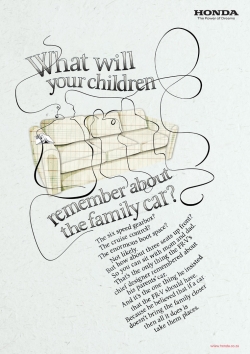 HONDA
The Power of Dreams
What will
your children
remember about
the family car?
The six speed gearbox?
The cruise control?
The enormous boot space?
Not likely.
But how about three seats up front?
So you can sit with mom and dad.
That's the only thing the FR-V's
chief designer remembered about
his parents' car.
And it's the one thing he insisted
that the FR-V should have.
Because he believed that if a car
doesn't bring the family closer
then all it does is
take them places.